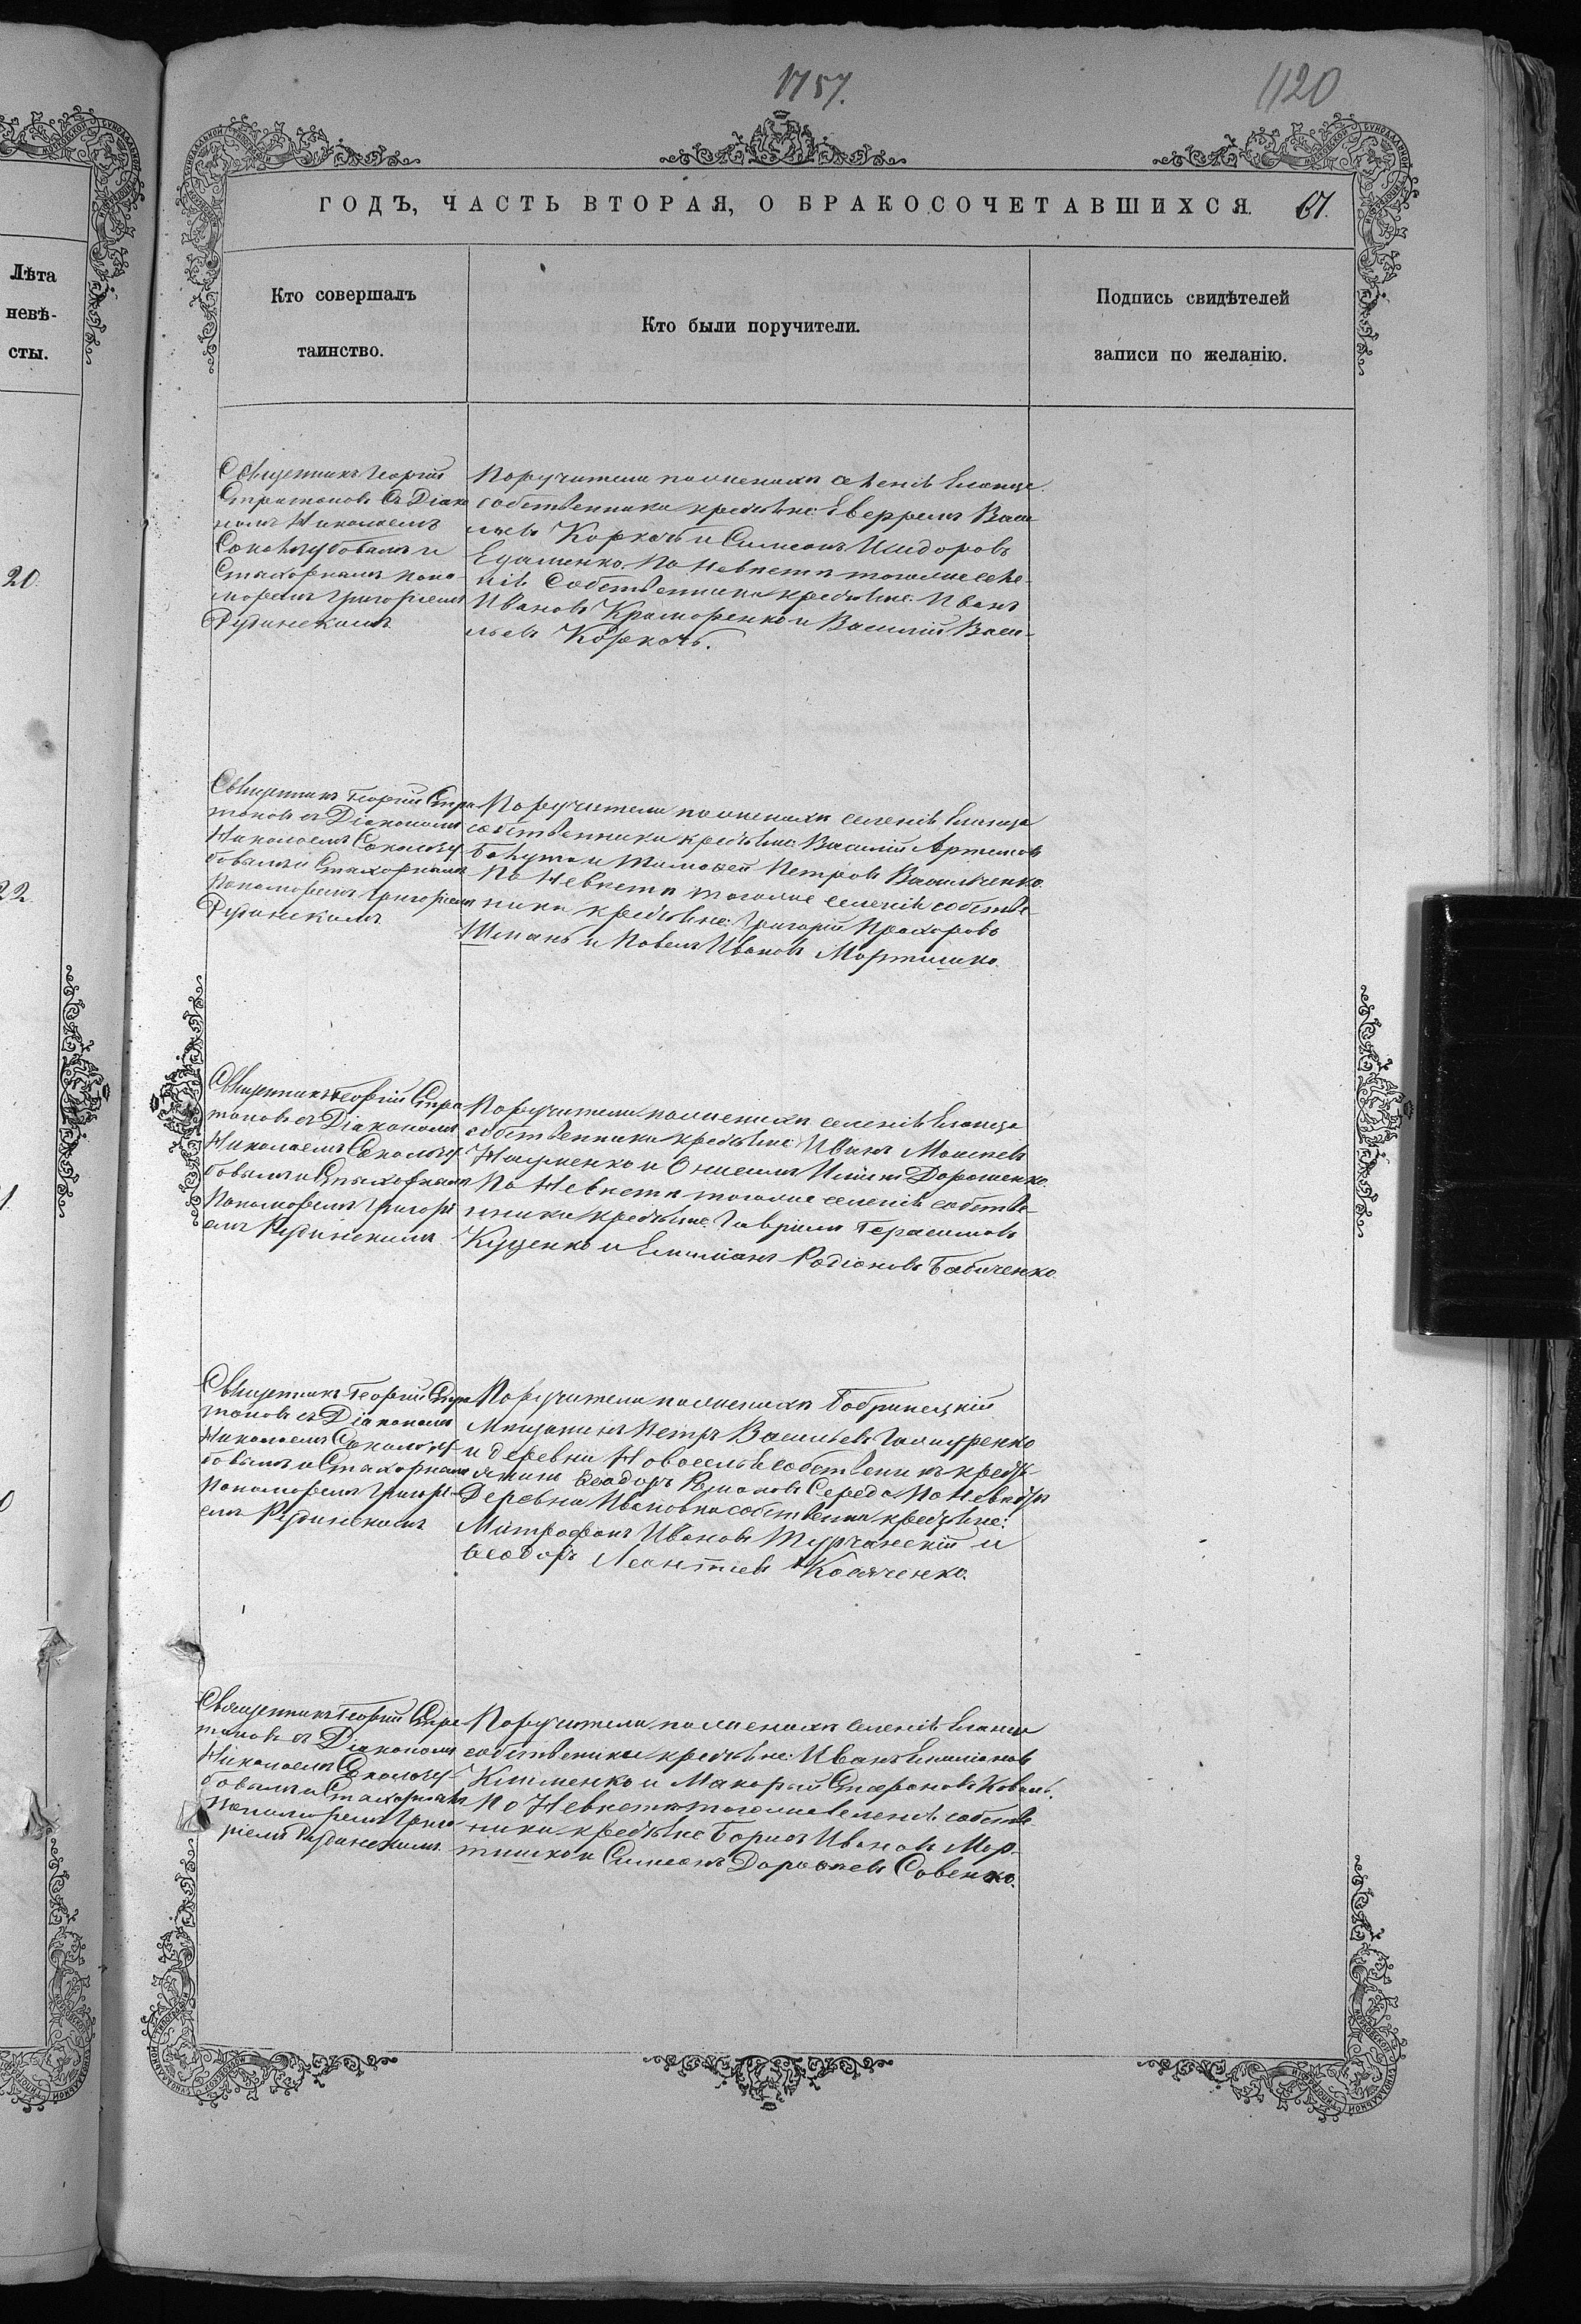 1757.
1120
ГОДЪ, ЧАСТЬ ВТОРАЯ, О БРАКОСОЧЕТАВШИХСЯ. 67.
Лѣта
невѣ-
сты.
Кто совершалъ
таинство.
Кто были поручители.
Подпись свидѣтелей
записи по желанію.
20.
22.
Священникъ Георгій
Стратоновъ съ Діако
номъ Николаемъ
Сокологубовымъ и
Стихарнымъ Поно-
маремъ Григоріемъ
Рудинскимъ
Поручители по женихѣ селенія Еланца
собственники крестьяне: Васи
льевъ Коркачъ и Симеонъ Исидоровъ
По Невѣстѣ тогоже селе-
нія Собственники крестьяне: Иванъ
Ивановъ Крамаренко и Василій Васи-
льевъ Коркачъ.
Священникъ Георгій Стра
тоновъ съ Діакономъ
Николаемъ Сокологу-
бовымъ и Стихарнымъ
Пономаремъ Григоріемъ
Рудинскимъ
Поручители по женихѣ селенія Еланца
собственники крестьяне: Василій Артемовъ
и Тимофей Петровъ Василченко.
По Невѣстѣ тогоже селенія собстве-
ники крестьяне: Григорій Прохоровъ
Шпакъ и Павелъ Ивановъ Мартишко.
Священникъ Георгій Стра
тоновъ съ Діакономъ
Николаемъ Сокологу-
бовымъ и Стихарнымъ
Пономаремъ Григорі
емъ Рудинскимъ
Поручители по женихѣ селенія Еланца
собственники крестьяне: Иванъ Моисеевъ
Науменко и Онисимъ Ильинъ Дорошенко.
По Невѣстѣ тогоже селенія собстве-
нники крестьяне: Гавріилъ Герасимовъ
Куценко и Емиліанъ Родіоновъ Бабиченко
Священникъ Георгій Стра
тоновъ съ Діакономъ
Николаемъ Сокологу-
бовымъ и Стихарнымъ
Пономаремъ Григорі-
емъ Рудинскимъ
Поручители по женихѣ Бобринецкій
Мѣщанинъ Петръ Васильевъ
и деревни Новоселья собственникъ кресть
янинъ Ѳеодоръ Романовъ Середа По Невѣстѣ
Деревни Ивановки собственники крестьяне:
Митрофанъ Ивановъ Турчанскій и
Ѳеодоръ Леонтіевъ Косяченко.
Священникъ Георгій Стра
тоновъ съ Діакономъ
Николаемъ Сокологу-
бовымъ и Стихарнымъ
Пономаремъ Григо
ріемъ Рудинскимъ.
Поручители по женихѣ селенія Еланца
собственники крестьяне: Иванъ Емиліановъ
Клименко и Макарій Стефановъ Коваль.
По Невѣстѣ тогоже селенія собстве
ники крестьяне Борисъ Ивановъ Мар-
тишко и Симеонъ Дорофеевъ Совенко.